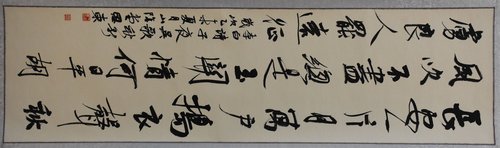 長安一片月萬戶擣衣聲秋
風吹不盡總是玉關情何日平胡
虜良人罷遠征
李白詩子夜吳歌秋歌